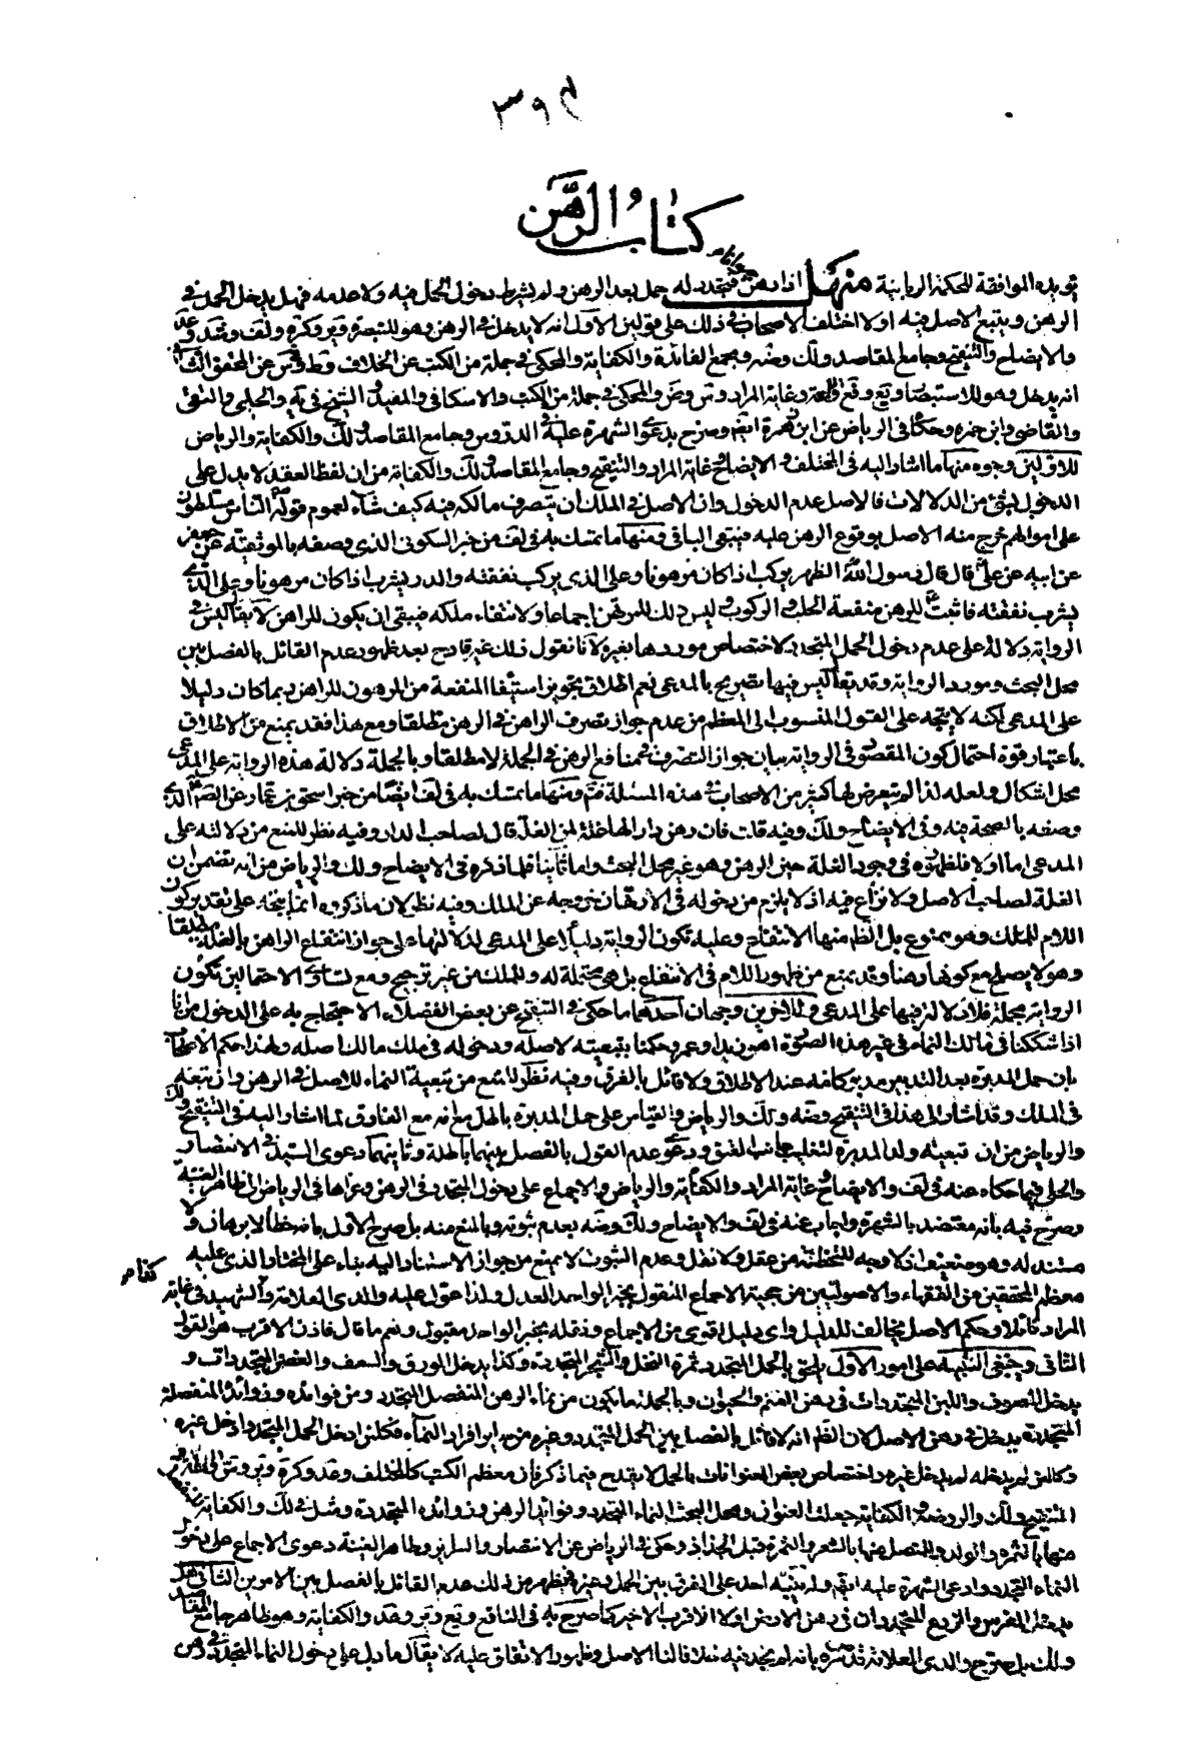 ٣٩٤
كتاب الرهن
يؤيده الموافقة للحكمة الربانية منهل اذا رهن فتجدد له حمل بعد الرهن ولم يشترط دخول الحمل فيه ولا عدمه فهل يدخل الحمل في
الرهن ويتبع الاصل فيه او لا اختلف الاصحاب في ذلك على قولين الاول انه لا يدخل في الرهن وهو للتبصرة وير وكرة ولف وشد وعد
والايضاح والتنقيح وجامع المقاصد ولك وضه ومجمع الفائدة والكفاية والمحكي في جملة من الكتب عن الخلاف وط عن المحقق الثاني
انه يدخل وهو للاستبصار ويع وفع واللمعة وغاية المراد وس والمحكي في جملة من الكتب والاسكافي والمفيد والشيخ في ية والحلبي والتقي
والقاضي وابن حمزة وحكاه في الرياض عن ابن زهرة ايضا وصرح بدعوى الشهرة عليه في الدروس وجامع المقاصد ولك والكفاية والرياض
للاولين وجوه منها ما اشار اليه في المختلف والايضاح وغاية المراد والتنقيح وجامع المقاصد ولك والكفاية من ان لفظ العقد لا يدل على
الدخول بشئ من الدلالات فالاصل عدم الدخول وان الاصل في الملك ان يتصرف مالكه فيه كيف شاء لعموم قوله الناس مسلطون
على اموالهم خرج منه الاصل بوقوع الرهن عليه فيبقى الباقي ومنها ما تمسك به في لف من خبر السكوني الذي وصفه بالموثقية عن جعفر
عن ابيه عن علي قال قال رسول الله الظهر يركب اذا كان مرهونا وعلى الذي يركب نفقته والدر يشرب اذا كان مرهونا وعلى الذي
يشرب نفقته فاثبت للرهن منفعة الحلب والركوب وليس ذلك للمرتهن اجماعا ولانتفاء ملكه فيبقى ان يكون للراهن لا يقال ليس في
الرواية دلالة على عدم دخول الحمل المتجدد لاختصاص موردها بغيره لانا نقول ذلك غير قادح بعد ظهور عدم القائل بالفصل بين
محل البحث ومورد الرواية وقد يقال ليس فيها تصريح بالمدعى نعم اطلاق تجويز استيفاء المنفعة من المرهون للراهن ربما كان دليلا
على المدعى لكنه لا يتجه على القول المنسوب الى المعظم من عدم جواز تصرف الراهن في الرهن مطلقا ومع هذا فقد يمنع من الاطلاق
باعتبار قوة احتمال كون المقصود في الرواية بيان جواز التصرف في منافع الرهن في الجملة لا مطلقا وبالجملة دلالة هذه الرواية على المدعى
محل اشكال ولعله لذا لم يتعرض لها كثير من الاصحاب في هذه المسئلة ومنها ما تمسك به في لف ايضا من خبر اسحق بن عمار عن الصادق الذي
وصفه بالصحة فيه وفي الايضاح ولك وفيه قلت فان رهن دارا لها غلة لمن الغلة قال لصاحب الدار وفيه نظر للمنع من دلالته على
المدعى اما اولا فلظهوره في وجود الغلة حين الرهن وهو غير محل البحث واما ثانيا فلما ذكره في الايضاح ولك والرياض من انه تضمن ان
الغلة لصاحب الاصل ولا نزاع فيه اذ لا يلزم من دخوله في الارتهان خروجه عن الملك وفيه نظر لان ما ذكروه انما يتجه على تقدير كون
اللام للملك وهو ممنوع بل الظاهر منها الانتفاع وعليه تكون الرواية دليلا على المدعى لدلالتها على جواز انتفاع الراهن بالغلة مطلقا
وهو لا يصح مع كونها رهنا وقد يمنع من ظهور اللام في الانتفاع بل هي محتملة له وللملك من غير ترجيح ومع تساوي الاحتمالين تكون
الرواية مجملة فلا دلالة فيها على المدعى وللاخرين وجهان احدهما ما حكى في التنقيح عن بعض الفضلاء الاحتجاج به على الدخول من انا
اذا شككنا في مالك النماء في غير هذه الصورة اهو زيد او عمرو حكمنا بتبعيته لاصله ودخوله في ملك مالك اصله ولهذا حكم الاصحاب
بان حمل المدبرة بعد التدبير مدبر كامه عند الاطلاق ولا قائل بالفرق وفيه نظر للمنع من تبعية النماء للاصل في الرهن وان تبعه
في الملك وقد اشار الى هذا في التنقيح وضه ولك والرياض والقياس على حمل المدبرة باطل مع انه مع الفارق لما اشار اليه في التنقيح ولك
والرياض من ان تبعية ولد المدبرة لتغليب جانب العتق ودعوى عدم القول بالفصل بينهما باطلة وثانيهما دعوى السيد في الانتصار
والحلي فيما حكاه عنه في لف والايضاح وغاية المراد والكفاية والرياض الاجماع على دخول المتجدد في الرهن وعزاها في الرياض الى ظاهر الغنية
وصرح فيه بانه معتضد بالشهرة واجاب عنه في لف والايضاح ولك وضه بعدم ثبوته وبالمنع منه بل صرح الاول بانه خطأ لا برهان ولا
مستند له وهو ضعيف اذ لا وجه للتخطئة من عقل ولا نقل وعدم الثبوت لا يمنع من جواز الاستناد اليه بناء على المختار الذي عليه
معظم المحققين من الفقهاء والاصوليين من حجية الاجماع المنقول بخبر الواحد العدل ولذا عول عليه والدي العلامة والشهيد في غاية
المراد قائلا وحكم الاصل مخالف للدليل واي دليل اقوى من الاجماع ونقله بخبر الواحد مقبول ونعم ما قال فاذن الاقرب هو القول
الثاني وينبغي التنبيه على امور الاول يلحق بالحمل المتجدد ثمرة النخل والشجر المتجددة وكذا يدخل الورق والسعف والغصن المتجددات و
يدخل الصوف واللبن المتجددات في رهن الغنم والحيوان وبالجملة ما يكون من نماء الرهن المنفصل المتجدد ومن فوائده وزوائده المنفصلة
المتجددة يدخل في رهن الاصل لان الظاهر انه لا قائل بالفصل بين الحمل المتجدد وغيره من سائر افراد النماء فكل من ادخل الحمل المتجدد ادخل غيره
وكل من لم يدخله لم يدخل غيره واختصاص بعض العنوانات بالحمل لا يقدح فيما ذكر فان معظم الكتب كالمختلف وعد وكرة وير وس
التنقيح ولك والروضة والكفاية جعلت العنوان ومحل البحث النماء المتجدد وفوائد الرهن وزوائده المتجددة ومثل في لك والكفاية
منها بالثمرة والولد والمتصل منها بالشعر والثمرة قبل الجذاذ وحكى في الرياض عن الانتصار والسرائر وظاهر الغنية دعوى الاجماع على دخول
النماء المتجدد وادعى الشهرة عليه ايضا ولم ينبه احد على الفرق بين الحمل وغيره فيظهر من ذلك عدم القائل بالفصل بين الامرين الثاني هل
يدخل الغرس والزرع المتجددان في رهن الارض او لا الاقرب الاخير كما صرح به في النافع ويع وير وعد والكفاية وهو ظاهر جامع المقاصد
ولك بل صرح والدي العلامة قدس سره بانه لم يجد فيه خلافا لنا الاصل وظهور الاتفاق عليه لا يقال ما دل على دخول النماء المتجدد في رهن